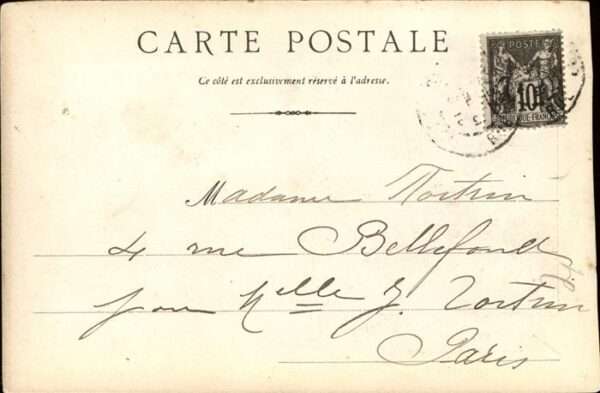 CARTE POSTALE
Ce côté est exclusivement réservé à l'adresse.
POSTE
10
RÉPUBLIQUE FRANÇAISE
Madame Tortrin
4 rue Bellefond
pour Mlle J. Tortrin
Paris